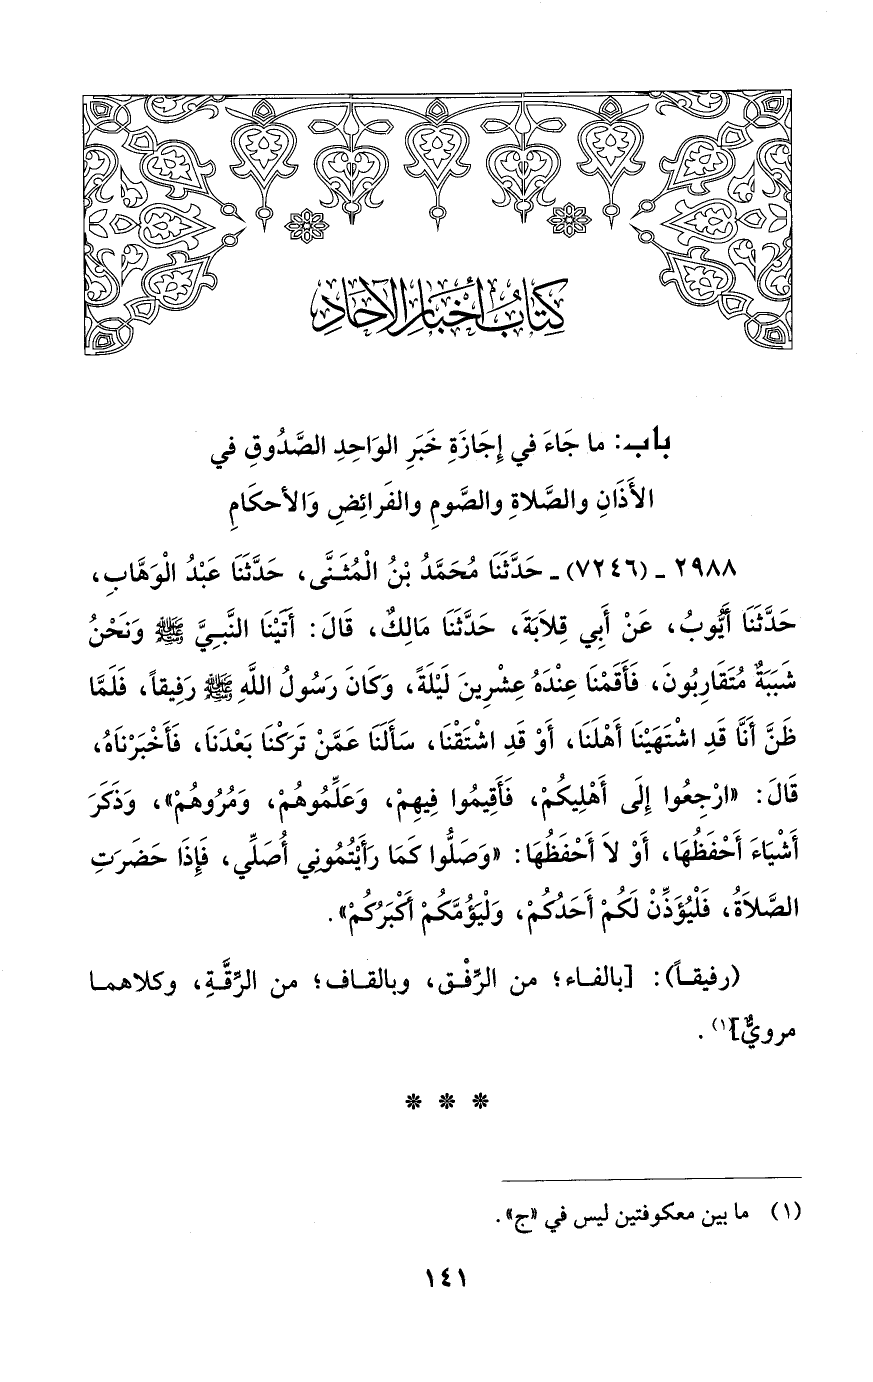 كِتَابُ أَخْبَارِ الآحَادِ
باب: ما جَاءَ في إِجَازَةِ خَبَرِ الوَاحِدِ الصَّدُوقِ في
الأَذَانِ والصَّلاةِ والصَّومِ والفَرائِضِ وَالأحكَامِ
٢٩٨٨ ـ (٧٢٤٦) ـ حَدَّثَنَا مُحَمَّدُ بْنُ الْمُثَنَّى، حَدَّثَنَا عَبْدُ الْوَهَّابِ،
حَدَّثَنَا أَيُّوبُ، عَنْ أَبِي قِلاَبَةَ، حَدَّثَنَا مَالِكٌ، قَالَ: أَتَيْنَا النَّبِيَّ ﷺ وَنَحْنُ
شَبَبَةٌ مُتَقَارِبُونَ، فَأَقَمْنَا عِنْدَهُ عِشْرِينَ لَيْلَةً، وَكَانَ رَسُولُ اللَّهِ ﷺ رَفِيقاً، فَلَمَّا
ظَنَّ أَنَّا قَدِ اشْتَهَيْنَا أَهْلَنَا، أَوْ قَدِ اشْتَقْنَا، سَأَلَنَا عَمَّنْ تَرَكْنَا بَعْدَنَا، فَأَخْبَرْنَاهُ،
قَالَ: «ارْجِعُوا إِلَى أَهْلِيكُمْ، فَأَقِيمُوا فِيهِمْ، وَعَلِّمُوهُمْ، وَمُرُوهُمْ»، وَذَكَرَ
أَشْيَاءَ أَحْفَظُهَا، أَوْ لاَ أَحْفَظُهَا: «وَصَلُّوا كَمَا رَأَيْتُمُونِي أُصَلِّي، فَإِذَا حَضَرَتِ
الصَّلاَةُ، فَلْيُؤَذِّنْ لَكُمْ أَحَدُكُمْ، وَلْيَؤُمَّكُمْ أَكْبَرُكُمْ».
(رفيقاً): [بالفاء؛ من الرِّفْق، وبالقاف؛ من الرِّقَّةِ، وكلاهما
مرويٌّ](١).
* * *
(١) ما بين معكوفتين ليس في «ج».
١٤١